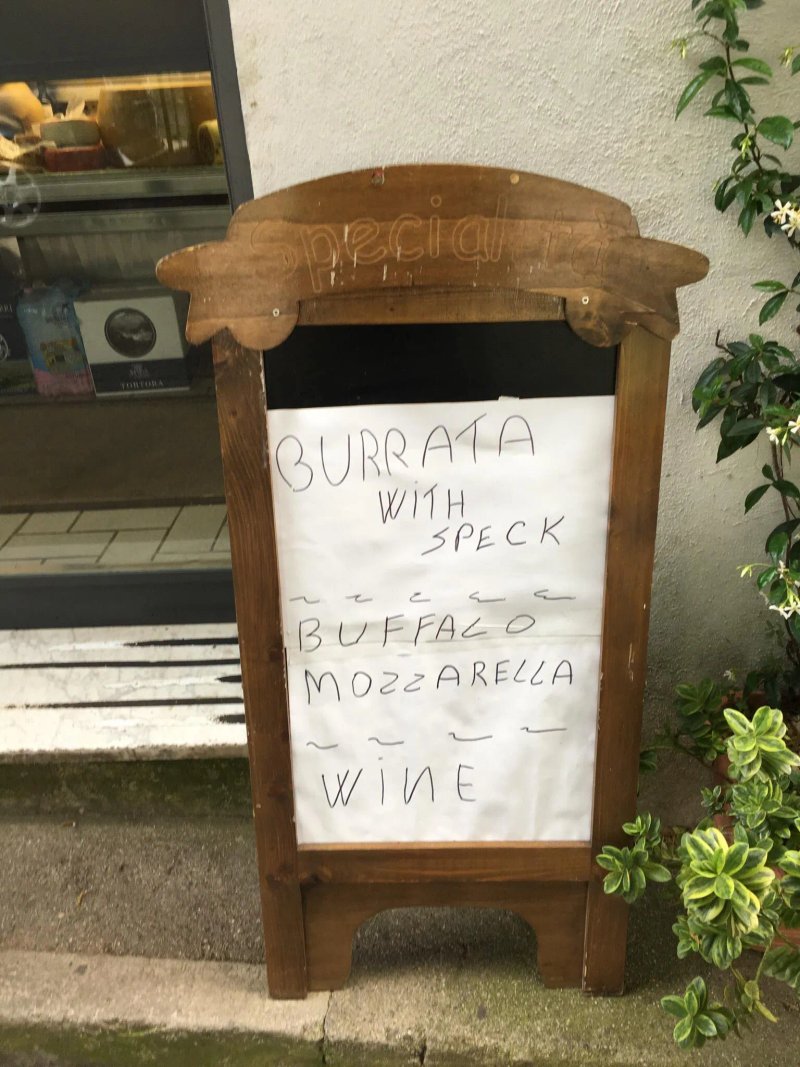 Specialità
BURRATA
WiTH
SPECK
BUFFALO
MOZZARELLA
WiNE
TORTORA